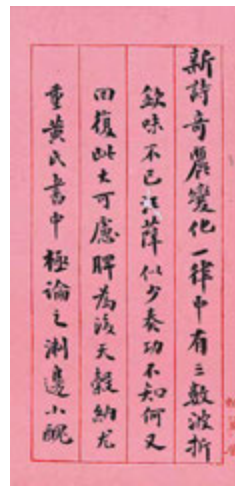 新詩奇麗變化一律中有三數波折
欽味不已洼薜似少奏功不知何又
回復此大可慮脾為後天穀納尤
重黃氏書中極論之渊邊小醜